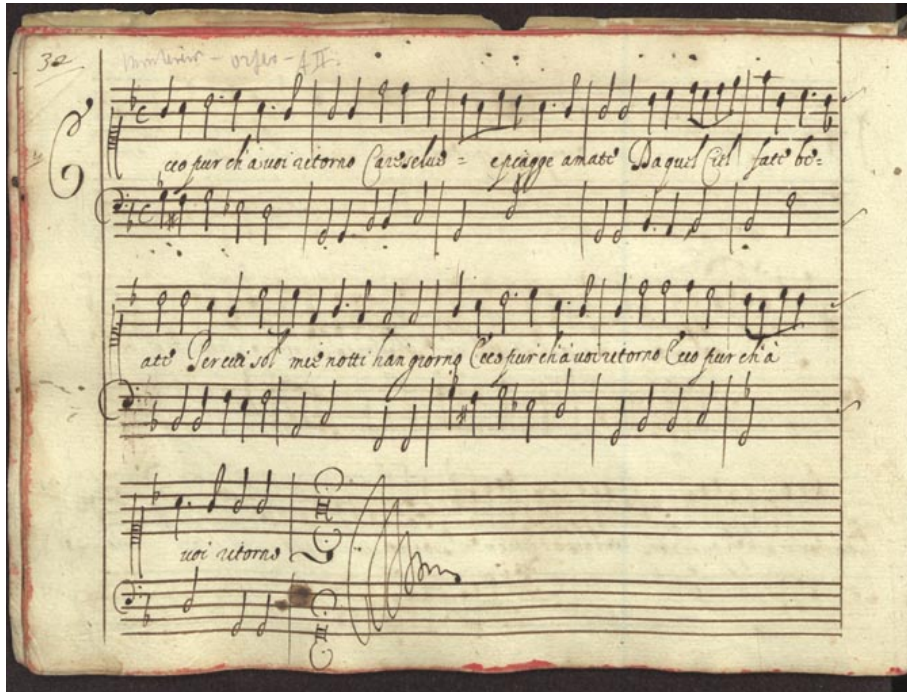 32 Monteverdi - orfeo - A II.
Ecco pur ch'à voi ritorno Care selue = e piagge amate Da quel Ciel fatt be=
ate Per cui sol mie notti han giorno Ecco pur ch'à voi ritorno Ecco pur ch'à
voi ritorno